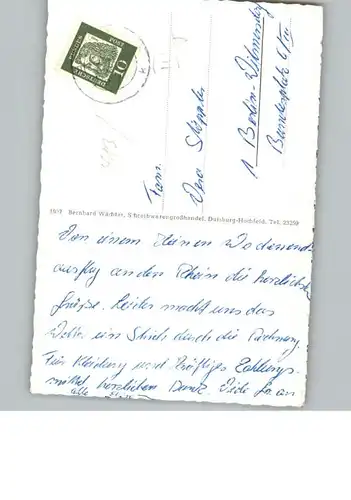 DEUTSCHE
BUNDES
POST
10
Fam.
Vera
1 Berlin-Wilmersdorf
Bundesplatz
Bernhard Wächter, Schreibwarengroßhandel, Duisburg-Hochfeld, Tel. 23259
Von einem kleinen Wochenend-
ausflug an den Rhein die herzlichsten
Grüße. Leider macht uns das
Wetter ein Strich durch die Rechnung.
Für Kleidung und kräftiges Zahlungs-
mittel herzlichen Dank. Viele Gr. an
alle